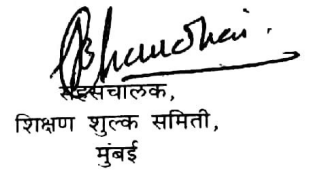 सहसंचालक,
शिक्षण शुल्क समिती,
मुंबई